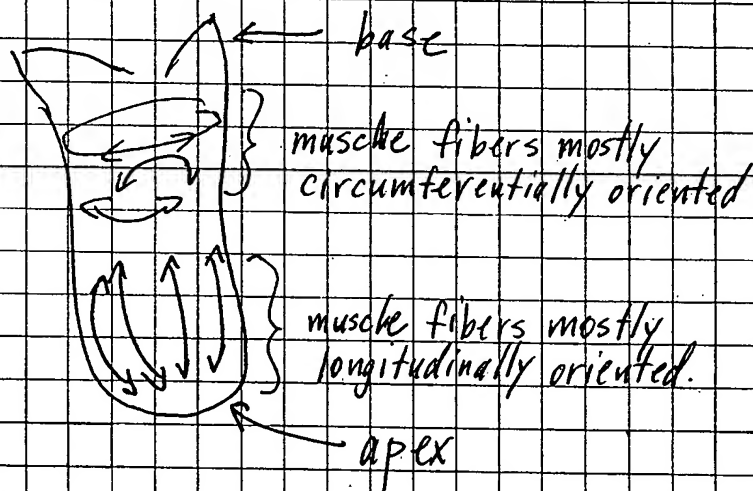 base
muscle fibers mostly
circumferentially oriented
muscle fibers mostly
longitudinally oriented.
apex